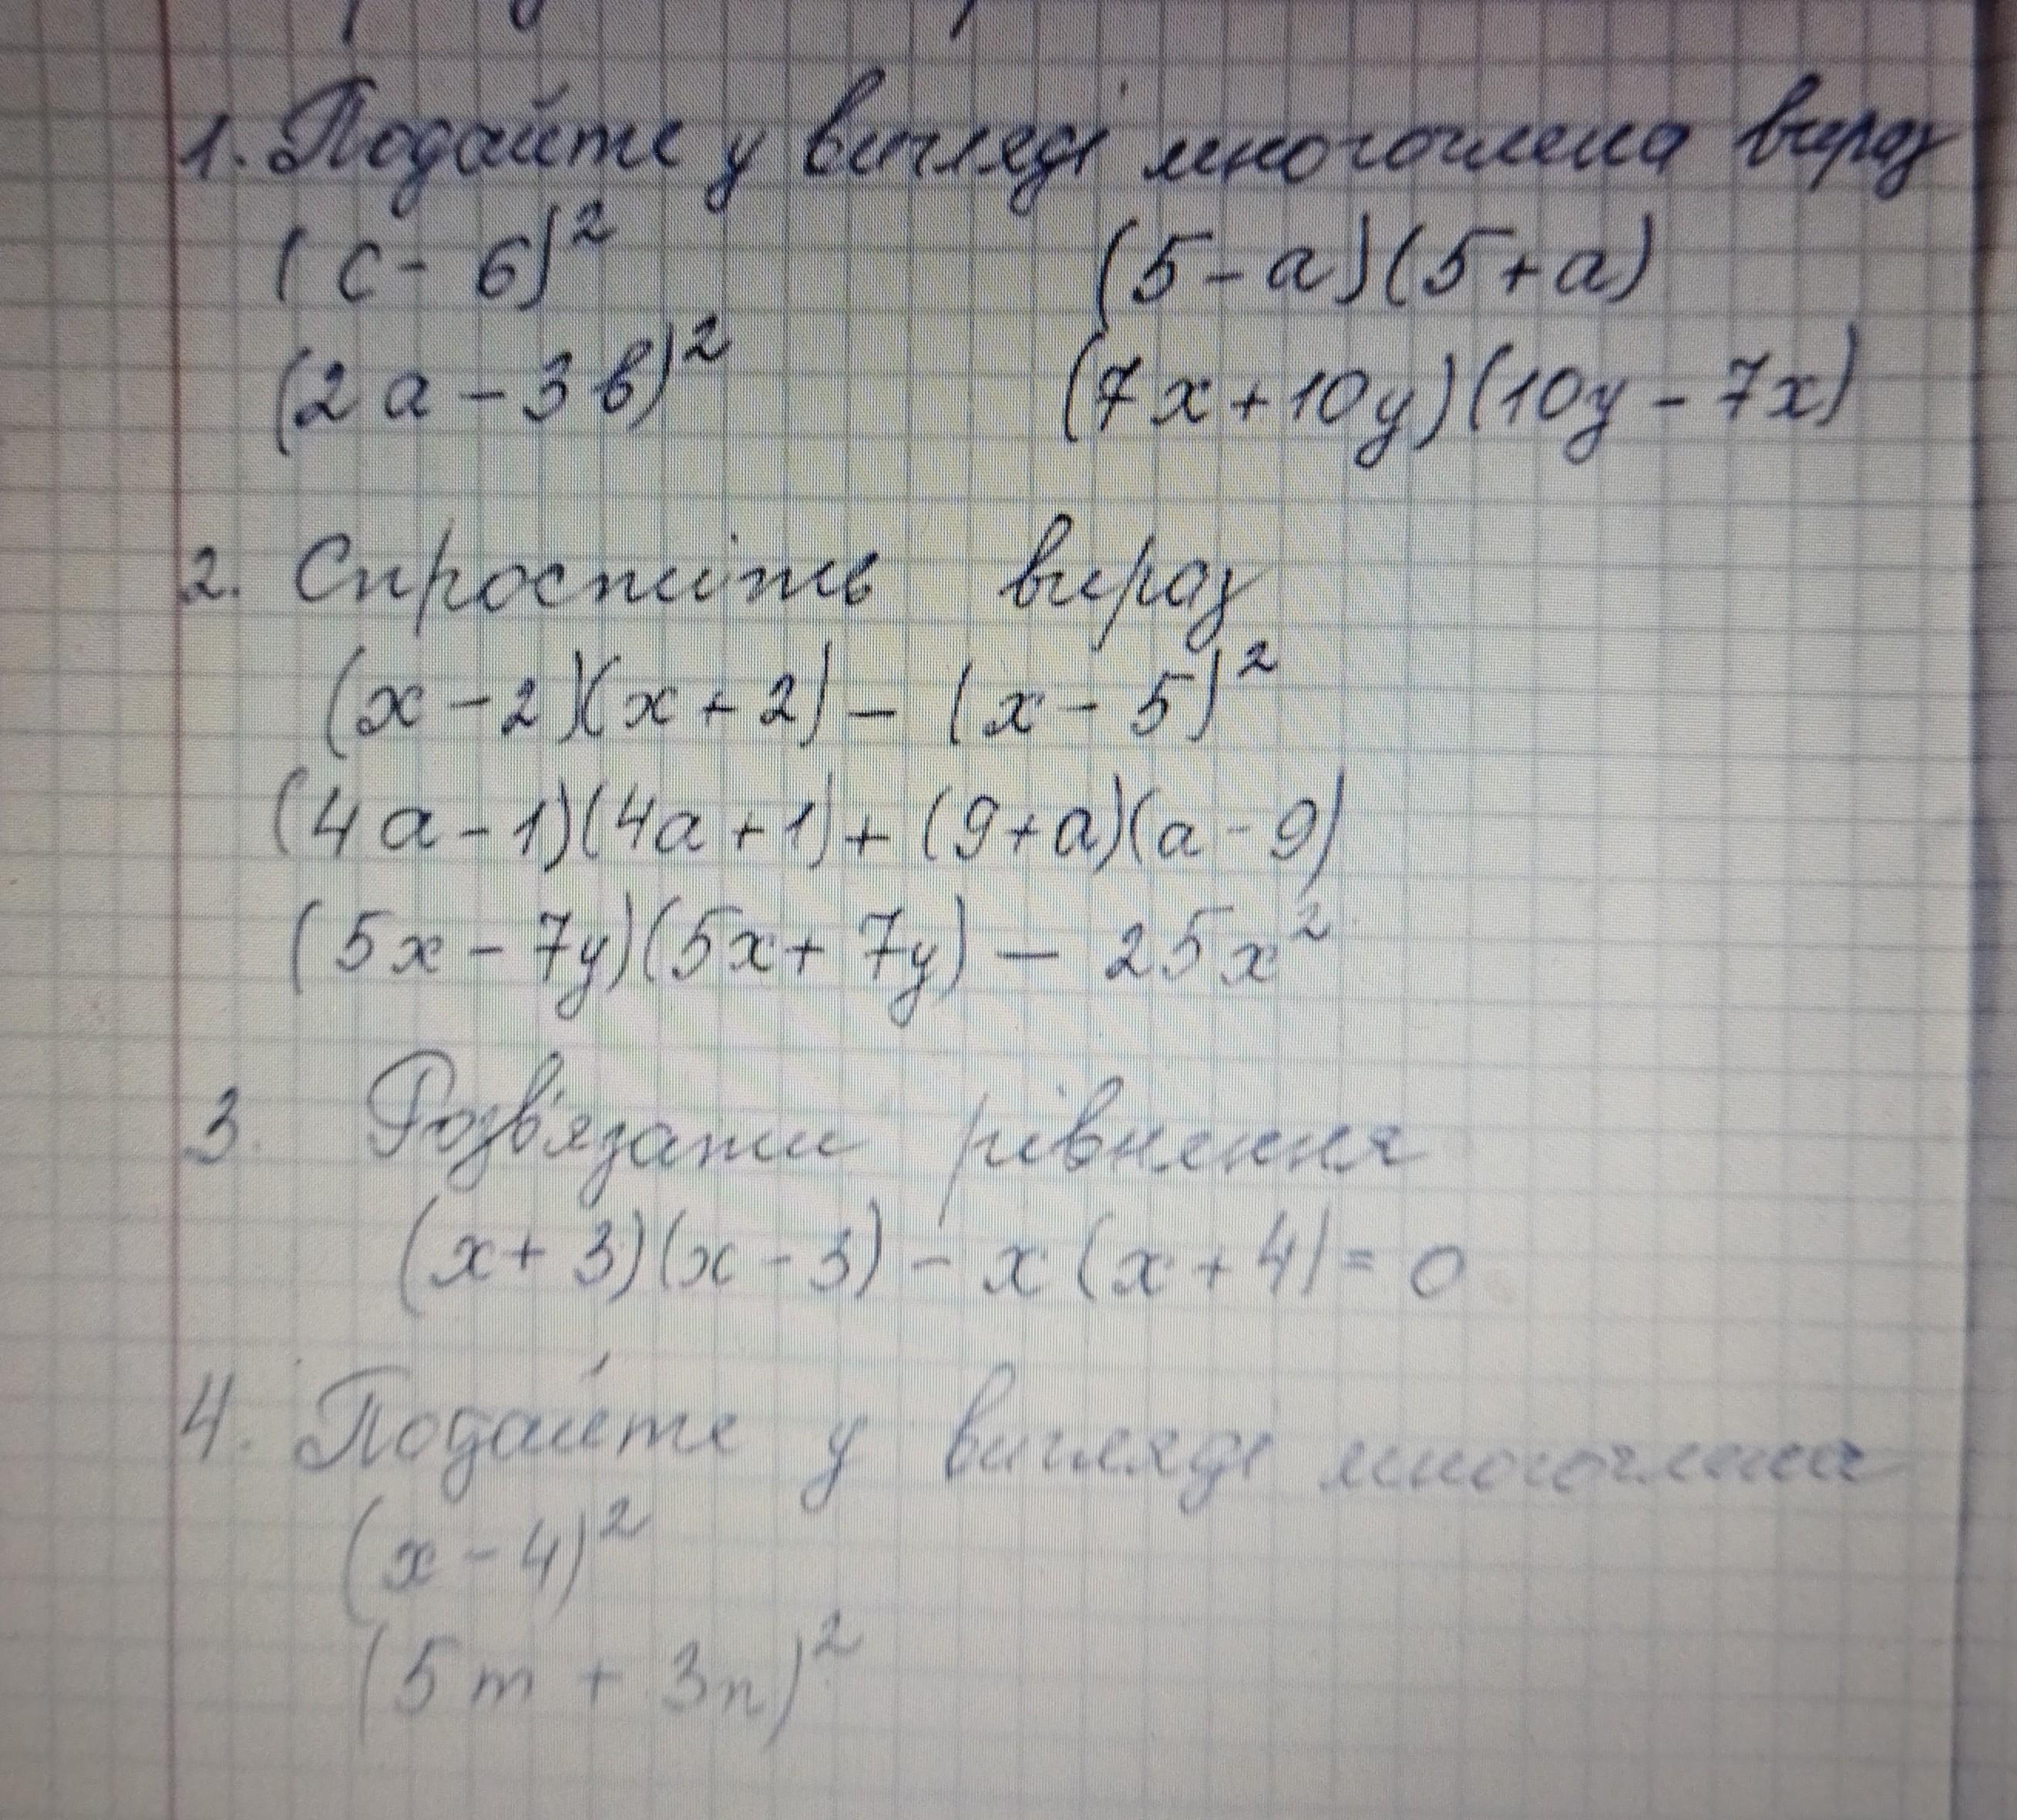 1. Подайте у вигляді многочлена вираз
(c - 6)² (5 - a)(5 + a)
(2a - 3b)² (7x + 10y)(10y - 7x)
2. Спростіть вираз
(x - 2)(x + 2) - (x - 5)²
(4a - 1)(4a + 1) + (9 + a)(a - 9)
(5x - 7y)(5x + 7y) - 25x²
3. Розв'язати рівнення
(x + 3)(x - 3) - x(x + 4) = 0
4. Подайте у вигляді многочлена
(x - 4)²
(5m + 3n)²